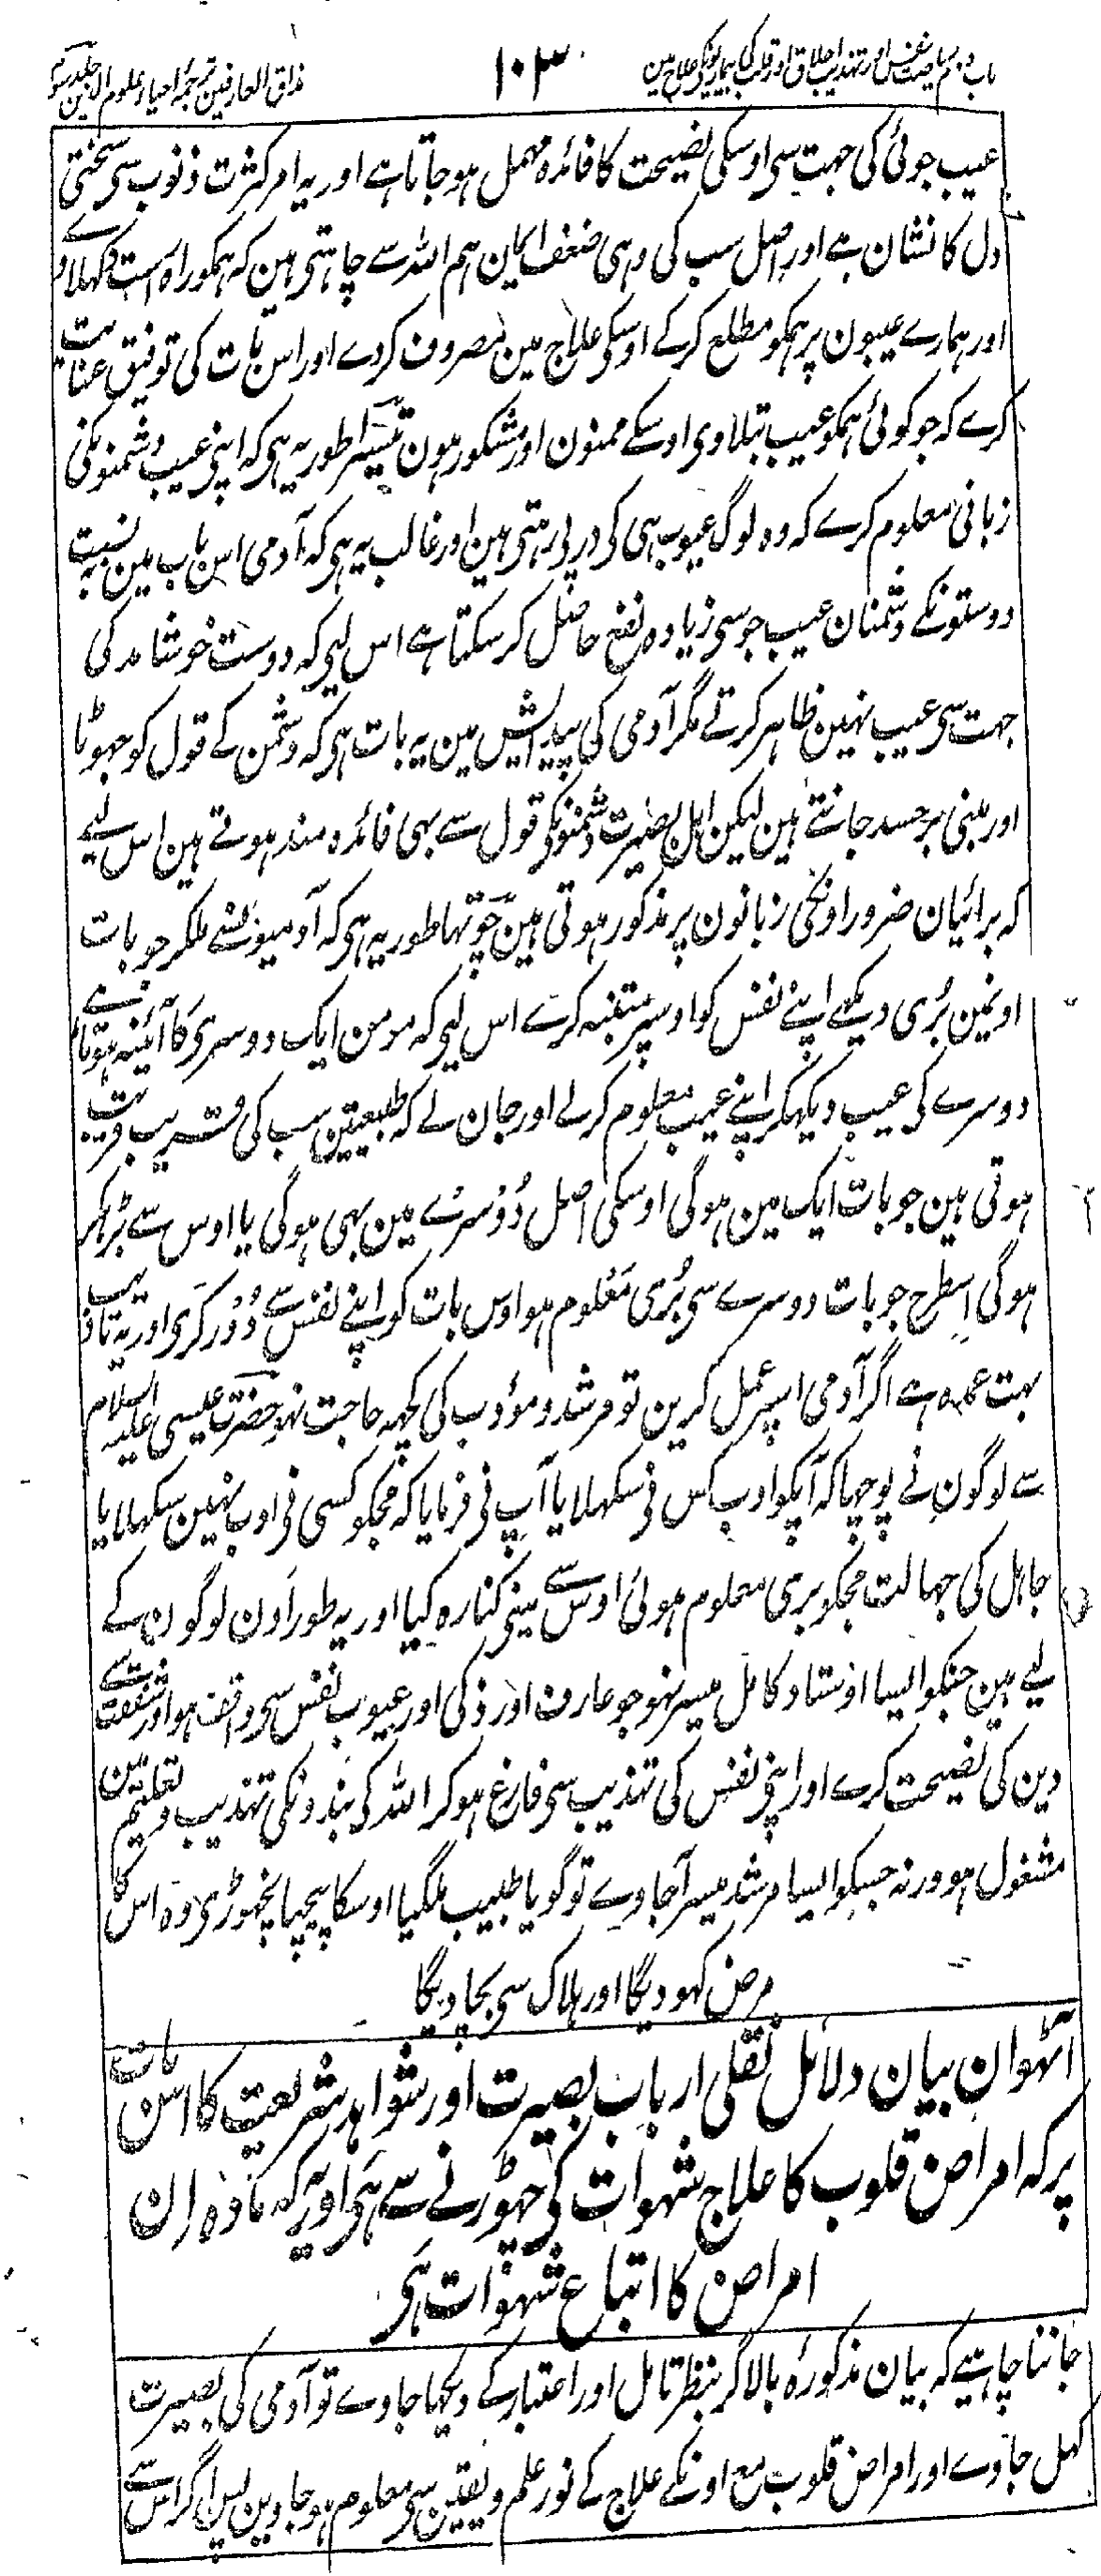 باب دہم ریاضت نفس اور تہذیب اخلاق اور قلب کی بیماریونکی علاج مین
۱۰۳
مذاق العارفین ترجمۂ احیاء علوم الدین جلد سوم
عیب جوئی کی جہت سی اوسکی نصیحت کا فائدہ مہمل ہو جاتا ہے اور یہ امر کثرت ذنوب سی سختی
دل کا نشان ہے اور اصل سب کی وہی ضعف ایمان ہم اللہ سے چاہتی ہین کہ ہمکو راہ راست دکہلاوے
اور ہمارے عیبون پر ہمکو مطلع کرکے اوسکی علاج مین مصروف کردے اور اس بات کی توفیق عنایت
کرے کہ جو کوئی ہمکو عیب بتلاوی اوسکے ممنون اور مشکور ہون تیسرا طور یہ ہی کہ اپنی عیب دشمنونکی
زبانی معلوم کرے کہ وہ لوگ عیوب ہی کی درپی رہتی ہین اور غالب یہ ہی کہ آدمی اس باب مین بہ نسبت
دوستونکے دشمنان عیب جو سی زیادہ نفع حاصل کر سکتا ہے اس لیی کہ دوست خوشامد کی
جہت سی عیب نہین ظاہر کرتے مگر آدمی کی پیدایش مین یہ بات ہی کہ دشمن کے قول کو جہوٹا
اور مبنی برحسد جانتے ہین لیکن اہل بصیرت دشمنونکی قول سے بہی فائدہ مند ہوتے ہین اس لیے
کہ برائیان ضرور اونکی زبانون پر مذکور ہوتی ہین چوتہا طور یہ ہی کہ آدمیونسے ملکر جو بات
اونمین بُری دیکہے اپنے نفس کو اوسپر متنبہ کرے اس لیی کہ مومن ایک دوسری کا آئینہ ہوتا ہے
دوسرے کی عیب دیکہکر اپنے عیب معلوم کرلے اور جان لے کہ طبیعتین سب کی قریب قریب
ہوتی ہین جو بات ایک مین ہوگی اوسکی اصل دُوسرے مین بہی ہوگی یا اوس سے بڑہکر
ہوگی اِسطرح جو بات دوسرے سی بُری مَعْلوم ہو اوس بات کو اپنے نفس سے دُوْر کرَی اور یہ تادیب
بہت عمدہ ہے اگر آدمی اسپر عمل کرین تو مرشد و مؤدب کی کچہہ حاجت نہو حضرت عیسی علیہ السلام
سے لوگون نے پوچہا کہ آپکو ادب کس نی سکہلایا آپ نی فرمایا کہ مجکو کسی نی ادب نہین سکہلایا
جاہل کی جہالت مجکو بری معلوم ہوئی اوس سے مینی کنارہ کیا اور یہ طور اون لوگون کے
لیے ہین جنکو ایسا اوستاد کامل میسر نہو جو عارف اور ذکی اور عیوب نفس سی واقف ہو اور شفقت سے
دین کی نصیحت کرے اور اپنی نفس کی تہذیب سی فارغ ہوکر اللہ کی بندونکی تہذیب و تعلیم مین
مشغول ہو ورنہ جسکو ایسا مرشد میسر آجاوے تو گویا طبیب ملگیا اوسکا پیچہا نچہوڑی وہ اس کا
مرض کہو دیگا اور ہلاک سی بچا دیگا
آٹہوان بیان دلائل نقلی ارباب بصیرت اور شواہد شریعت کا اس بات
پر کہ امراض قلوب کا علاج شہوات کی چہوڑنے سے ہی اور یہ کہ مادہ ان
امراض کا اتباع شہوات ہی
جاننا چاہیے کہ بیان مذکورۂ بالا اگر بنظر تامل اور اعتبار کے دیکہا جاوے تو آدمی کی بصیرت
کہل جاوے اور امراض قلوب مع اونکے علاج کے نور علم و یقین سی معلوم ہو جاوین پس اگر اس سے